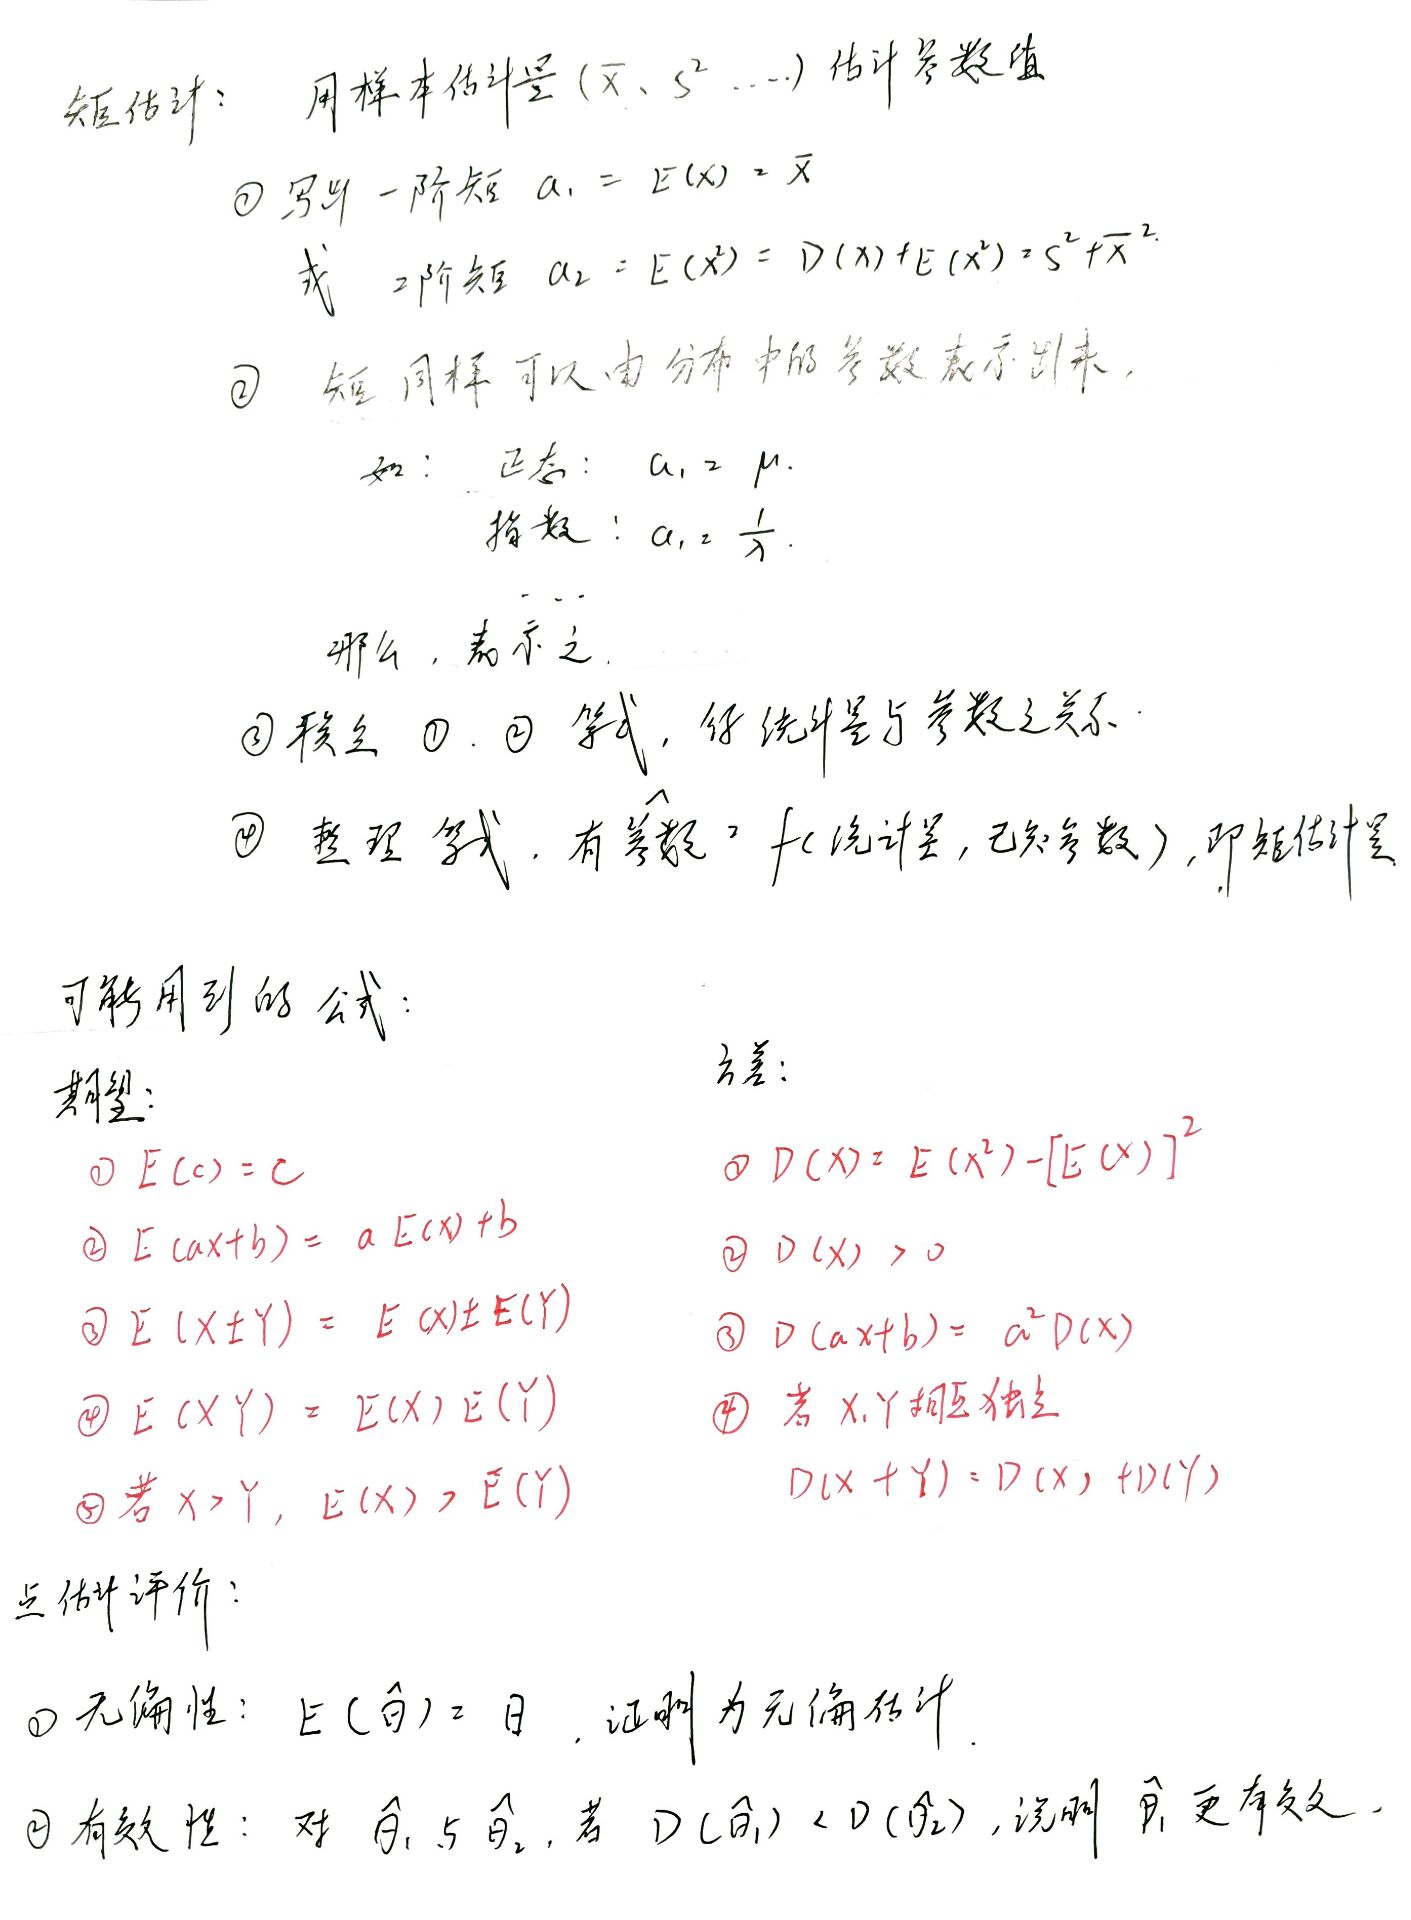 矩估计: 用样本估计量(x̄、s² ....)估计参数值
① 写出一阶矩 a₁ = E(X) = x̄
或 二阶矩 a₂ = E(X²) = D(X)+E(X²) = s²+x̄².
② 矩同样可以由分布中的参数表示出来,
如: 正态: a₁ = μ.
指数: a₁ = 1/λ.
....
那么, 表示之.
③ 联立 ①. ② 等式, 得统计量与参数之关系.
④ 整理等式. 有 参数^ = f(统计量, 已知参数), 即矩估计量
可能用到的公式:
期望:
① E(c) = c
② E(ax+b) = aE(X)+b
③ E(X±Y) = E(X)±E(Y)
④ E(XY) = E(X)E(Y)
⑤ 若 X>Y, E(X)>E(Y)
方差:
① D(X) = E(X²)-[E(X)]²
② D(X) > 0
③ D(ax+b) = a²D(X)
④ 若 X,Y相互独立
D(X+Y) = D(X)+D(Y)
点估计评价:
① 无偏性: E(θ̂) = θ, 证明为无偏估计.
② 有效性: 对 θ̂₁ 与 θ̂₂, 若 D(θ̂₁) < D(θ̂₂), 说明 θ̂₁ 更有效.